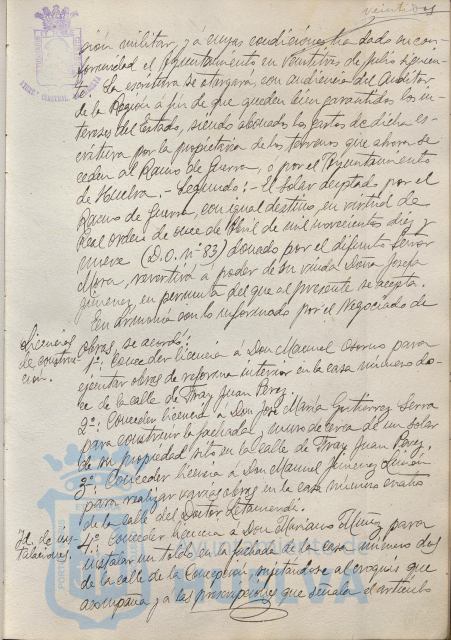 veintidos
gión militar, y á cuyas condiciones ha dado su con-
formidad el Ayuntamiento en veintitres de julio siguien-
te. La escritura se otorgará, con audiencia del Auditor
de la Región a fin de que queden bien garantidos los in-
tereses del Estado, siendo abonados los gastos de dicha es-
critura por la propietaria de los terrenos que ahora se
ceden al Ramo de Guerra, ó por el Ayuntamiento
de Huelva.- Segundo:- El solar aceptado por el
Ramo de Guerra, con igual destino, en virtud de
Real orden de once de Abril de mil novecientos diez y
nueve (D.O. nº 83) donado por el difunto Señor
Mora, revertirá a poder de su viuda Doña Josefa
Jimenez, en permuta del que al presente se acepta.
En armonia con lo informado por el Negociado de
Licencias
de construc-
ción.
obras, se acordó:
1º: Conceder licencia á Don Manuel Osorno para
ejecutar obras de reforma interior en la casa número do-
ce de la calle de Fray Juan Perez.
2º: Conceder licencia á Don José Maria Gutierrez Serra
para construir la fachada y muro de cerca de un solar
de su propiedad sito en la calle de Fray Juan Perez.
3º: Conceder licencia á Don Manuel Jimenez
para realizar varias obras en la casa número cuatro
de la calle del Doctor Letamendi.
Id. de ins-
talaciones.
4º: Conceder licencia á Don Mariano Muñiz para
instalar un toldo en la fachada de la casa número dos
de la calle de la Concepcion, sujetandose al croquis que
acompaña y a las prescripciones que señala el articulo